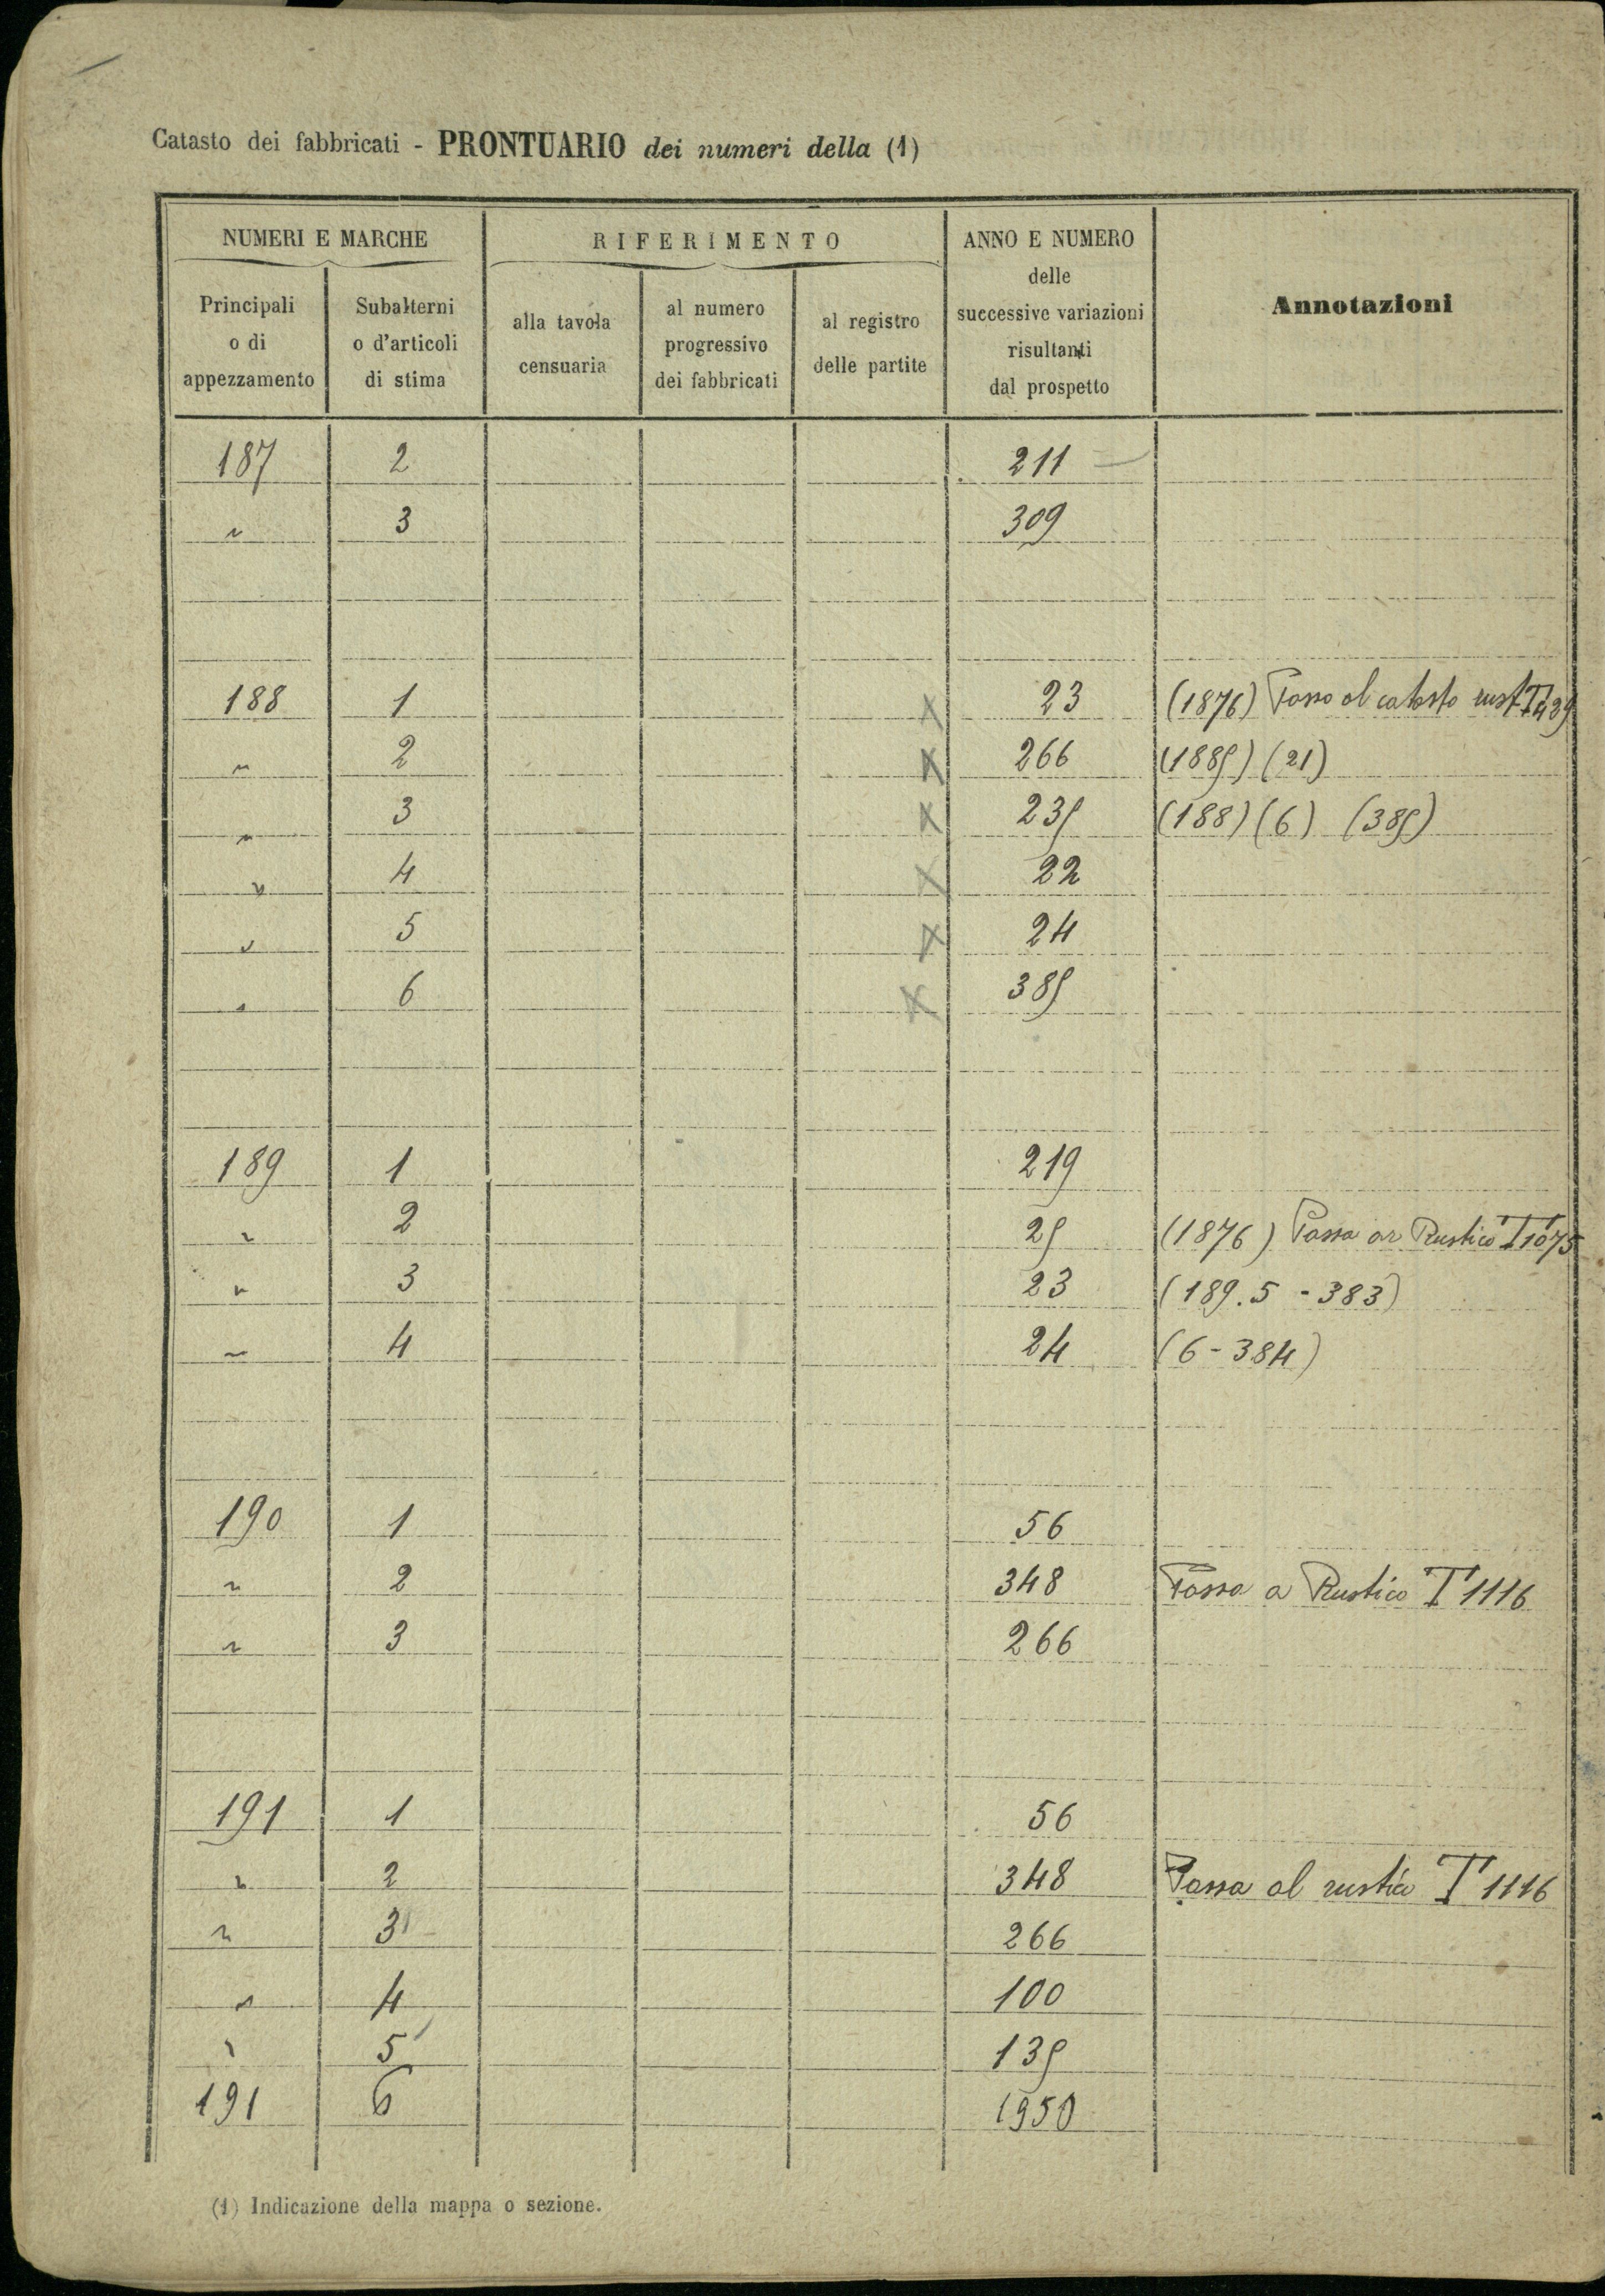 Catasto dei fabbricati - PRONTUARIO dei numeri della (1)
NUMERI E MARCHE
RIFERIMENTO
ANNO E NUMERO
delle
successive variazioni
risultanti
dal prospetto
Annotazioni
Principali
o di
appezzamento
Subalterni
o d'articoli
di stima
alla tavola
censuaria
al numero
progressivo
dei fabbricati
al registro
delle partite
187 2 211
" 3 309
188 1 X 23 (1876) Passo al catasto rust T 439
" 2 X 266 (1885) (21)
" 3 X 235 (188) (6) (385)
" 4 X 22
" 5 X 24
" 6 X 385
189 1 219
" 2 25 (1876) Passa a Rustico T 1075
" 3 23 (189.5 - 383)
" 4 24 (6 - 384)
190 1 56
" 2 348 Passa a Rustico T 1116
" 3 266
191 1 56
" 2 348 Passa al rustico T 1116
" 3 266
" 4 100
" 5 135
191 6 1950
(1) Indicazione della mappa o sezione.